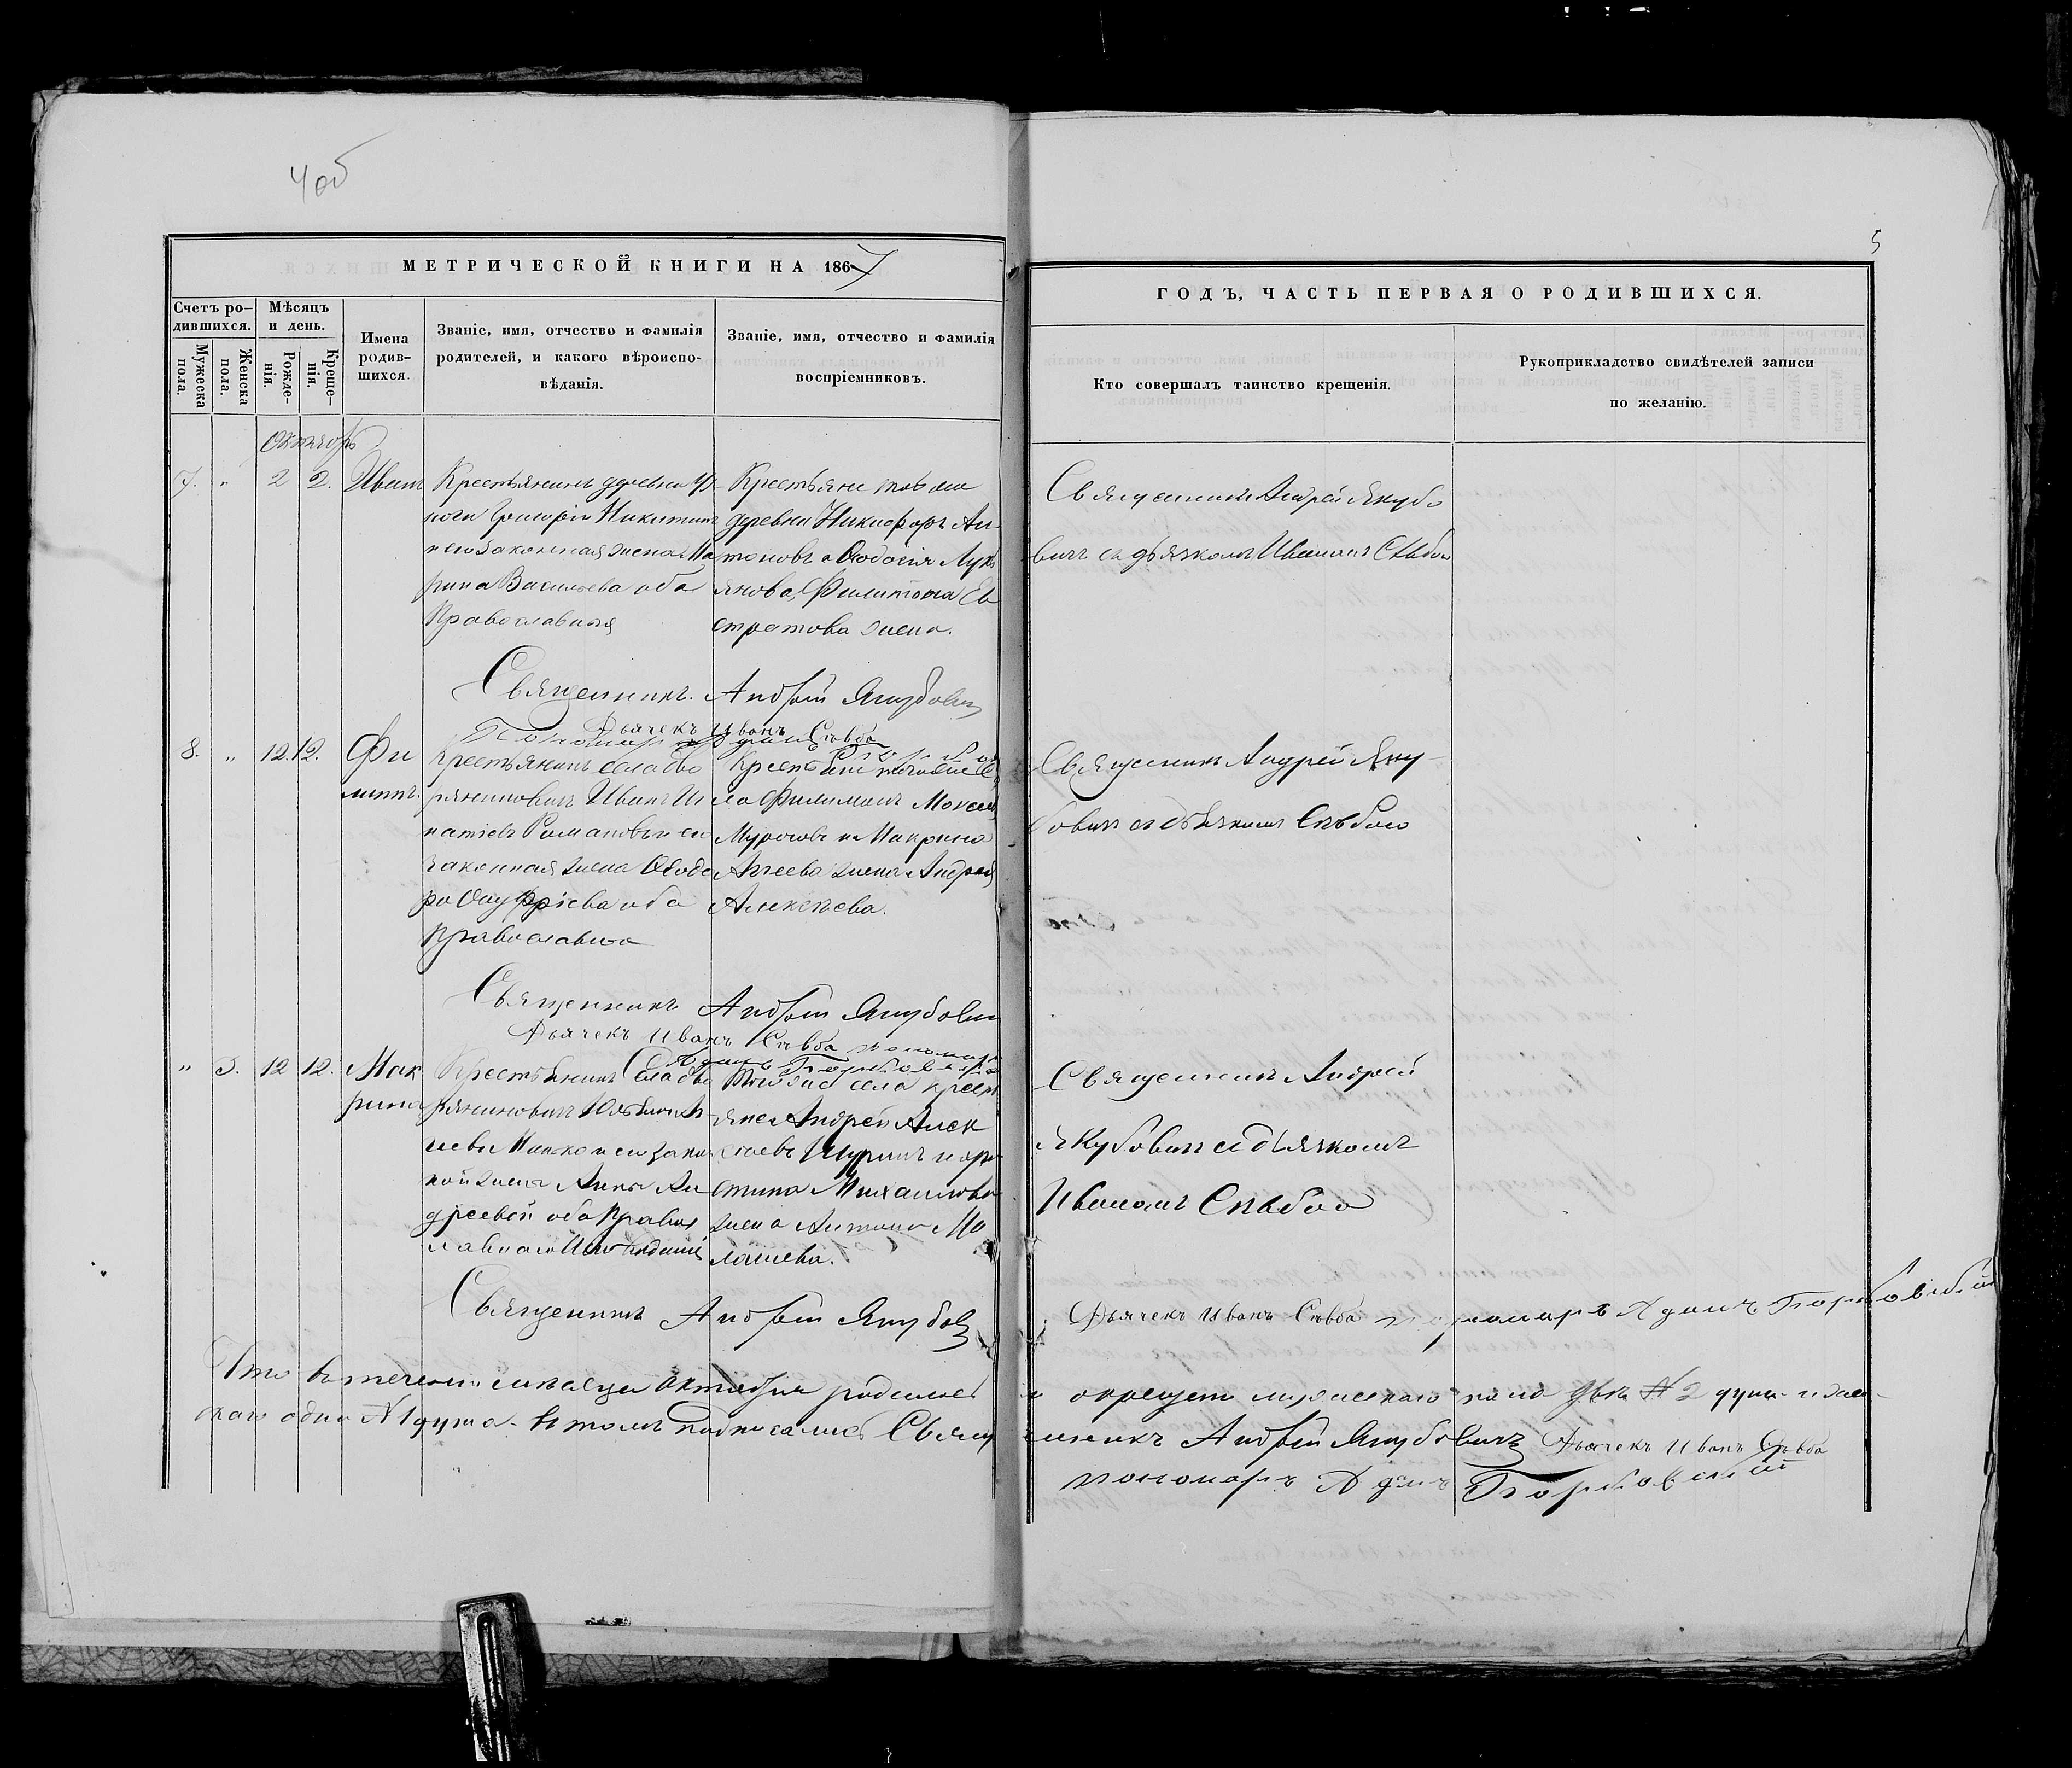 4 об
5
МЕТРИЧЕСКОЙ КНИГИ НА 1867
Счетъ ро-
дившихся.
Мужеска
пола.
Женска
пола.
Мѣсяцъ
и день.
Рожде-
нія.
Креще-
нія.
Имена
родив-
шихся.
Званіе, имя, отчество и фамилія
родителей, и какого вѣроиспо-
вѣданія.
Званіе, имя, отчество и фамилія
воспріемниковъ.
ГОДЪ, ЧАСТЬ ПЕРВАЯ О РОДИВШИХСЯ.
Кто совершалъ таинство крещенія.
Рукоприкладство свидѣтелей записи
по желанію.
Октябрь
7. " 2 2. Иванъ
Крестьянинъ деревни
Григорій Никитинъ
и его законная жена Ма
рина Васильева оба
Православныя
Крестьяне той же
деревни Никифоръ Ан
тоновъ и Ѳеодосія Лукь
янова, Филипова Ев
стратова жена.
Священникъ Андрей Якубо
вичъ съ дьячкомъ Иваномъ Сѣвбою
Священникъ Андрей Якубовичъ
Дьячекъ Иванъ Сѣвба
Пономарь Адамъ
8. " 12. 12. Фи
липпъ.
Крестьянинъ села Дво
ряниновичъ Иванъ Иг
натіевъ Романовъ и его
законная жена Ѳеодо
ра Онуфріева оба
православна
Крестьяне того же се
ла Филимонъ
и Макрина
Агеева жена Андрея
Алексѣева.
Священникъ Андрей Яку
бовичъ съ дьячкомъ Сѣвбою
Священникъ Андрей Якубовичъ
Дьячекъ Иванъ Сѣвба пономарь
Адамъ
" 3. 12 12. Мак
рина
Крестьянинъ Села Дво
ряниновичъ
и его закон
ной жена Анна Ан
дреевой оба Правос
лавнаго Исповеданія
Того же села крест
яне Андрей Алек
сѣевъ
стина Михаилова
жена Антона Ма
лашева.
Священникъ Андрей
Якубовичъ съ дьячкомъ
Иваномъ Сѣвбою
Священникъ Андрей Якубовичъ
Дьячекъ Иванъ Сѣвба пономарь Адамъ
Что въ теченіи мѣсяца Октября родилось и окрещено мужескаго пола два № 2 души и жен-
скаго одна № 1 душа. въ томъ подписались Священникъ Андрей Якубовичъ Дьячекъ Иванъ Сѣвба
пономарь Адамъ